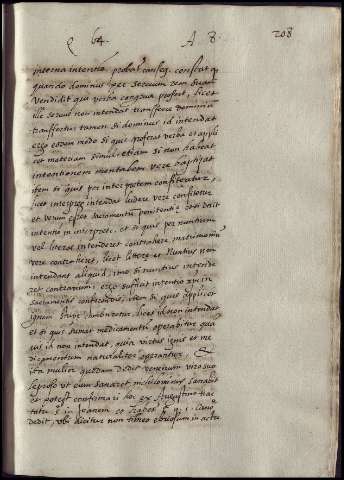 Q 64. A 8. 208
interna intentio. probat conseq. constat q
quando dominus per servum rem suam
vendidit qui verba congrua profert, licet
ille servus non intendat transferre dominium
transfertur tamen si dominus id intendat
ergo eodem modo si quis proferat verba et appli
cet materiam simul, etiam si non habeat
intentionem mentalem vere baptizat
item si quis per interpretem confiteretur,
licet interpres intendat ludere vere confitetur
et verum esset sacramentum penitentiae
intentio in interprete, et si quis per nuntium
vel literas intenderet contrahere matrimonium
vere contraheret, licet litterae et nuntius non
intendant aliquid, imo si nuntius intende
ret contrarium; ergo sufficit intentio
sacramentis conferendis, item si quis applicet
ignem stupe, comburetur, licet id non intendat
et si quis sumat medicamentum operabitur qua
vis id non intendat, quia virtus ignis et me
dicamentum naturaliter operantur,
ita mulier quedam dedit venenum viro suo
leproso ut eum sanaret,
et potest confirmari hoc ex Augustino trac
tatu 5 in Joanem
dedit, ubi dicitur non timeo ebriosum in actu